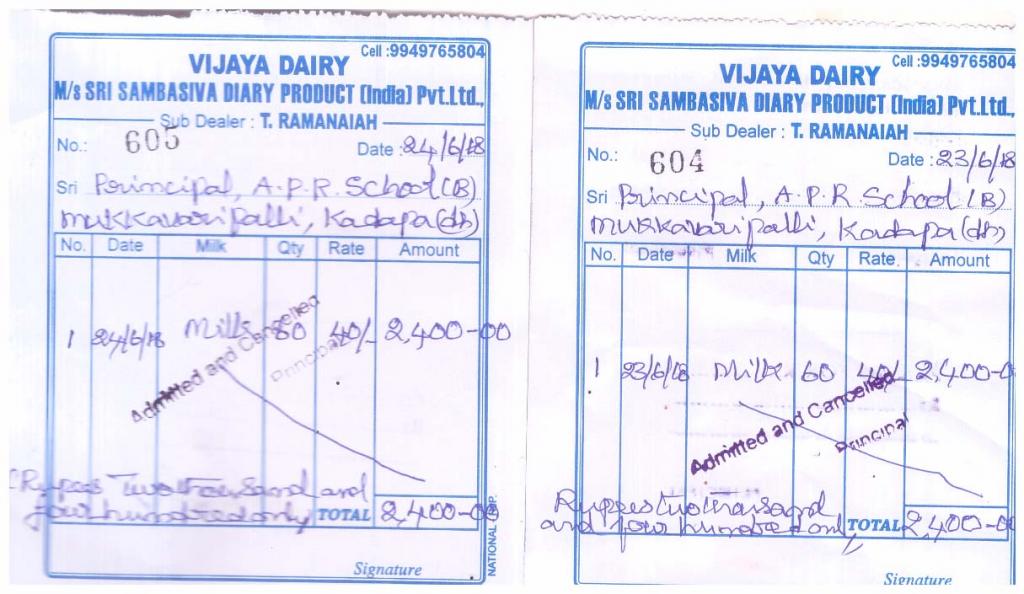 Cell :9949765804
VIJAYA DAIRY
M/s SRI SAMBASIVA DIARY PRODUCT (India) Pvt.Ltd.,
Sub Dealer : T. RAMANAIAH
No.: 605 Date : 24/6/18
Sri Principal, A.P.R. School (B)
Mukkavaripalli, Kadapa (dt)
No. Date Milk Qty Rate Amount
1 24/6/18 Milk 60 40/- 2,400-00
Admitted and Cancelled
Principal
Rupees Two thousand and
four hundred only TOTAL 2,400-00
Signature
Cell :9949765804
VIJAYA DAIRY
M/s SRI SAMBASIVA DIARY PRODUCT (India) Pvt.Ltd.,
Sub Dealer : T. RAMANAIAH
No.: 604 Date : 23/6/18
Sri Principal, A.P.R. School (B)
Mukkavaripalli, Kadapa (dt)
No. Date Milk Qty Rate. Amount
1 23/6/18 Milk 60 40/- 2,400-0
Admitted and Cancelled
Principal
Ruppes two thousand
and four hundred only, TOTAL 2,400-0
Signature